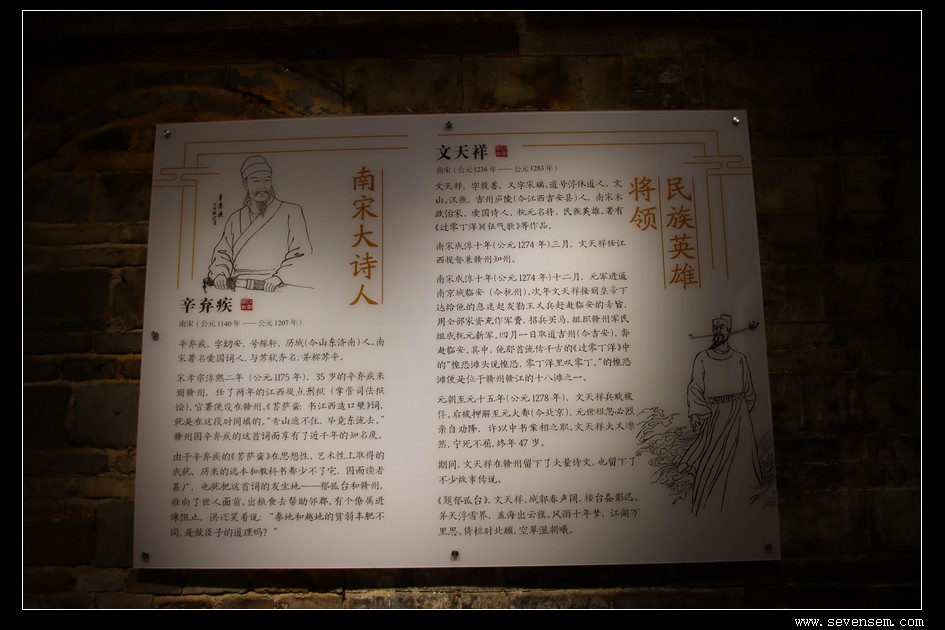 南宋大诗人
辛弃疾
南宋（公元1140年——公元1207年）
辛弃疾，字幼安，号稼轩，历城(今山东济南)人，南
宋著名爱国词人，与苏轼齐名，并称苏辛。
宋孝宗淳熙二年（公元1175年），35岁的辛弃疾来
到赣州，任了两年的江西提点刑狱（掌管司法狱
讼），官署便设在赣州。《菩萨蛮·书江西造口壁》词，
就是在这段时间填的，“青山遮不住，毕竟东流去。”
赣州因辛弃疾的这首词而享有了近千年的知名度。
由于辛弃疾的《菩萨蛮》在思想性、艺术性上取得的
成就，历来的选本和教科书都少不了它，因而读者
甚广，也就把这首词的发生地——郁孤台和赣州，
推向了世人面前。出粮食去帮助邻郡。有个僚属进
谏阻止，洪迈笑着说：“秦地和越地的贫弱丰肥不
同，是做臣子的道理吗？”
文天祥
南宋（公元1236年——公元1283年）
民族英雄
将领
文天祥，字履善，又字宋瑞，道号浮休道人，文
山，汉族，吉州庐陵(今江西吉安县)人，南宋末
政治家、爱国诗人，抗元名将，民族英雄，著有
《过零丁洋》《征气歌》等作品。
南宋咸淳十年(公元1274年)三月，文天祥任江
西提督兼赣州知州。
南宋咸淳十年(公元1274年)十二月，元军进逼
南京城临安（今杭州），次年文天祥接到皇帝下
达给他的急速起发勤王义兵赶赴临安的专旨，
用全部家资充作军费，招兵买马，组织赣州军民
组成抗元新军，四月一日取道吉州(今吉安)，奔
赴临安。其中，他那首流传千古的《过零丁洋》中
的“惶恐滩头说惶恐，零丁洋里叹零丁。”的惶恐
滩便是位于赣州赣江的十八滩之一。
元朝至元十五年(公元1278年)，文天祥兵败被
俘，后被押解至元大都(今北京)，元世祖忽必烈
亲自劝降，许以中书宰相之职。文天祥大义凛
然，宁死不屈，终年47岁。
期间，文天祥在赣州留下了大量诗文，也留下了
不少故事传说。
《题郁孤台》，文天祥。城郭春声阔，楼台昼影迟。
并天浮雪界，盖海出云旗。风雨十年梦，江湖万
里思。倚栏时北顾，空翠湿朝曦。
www.sevensem.com